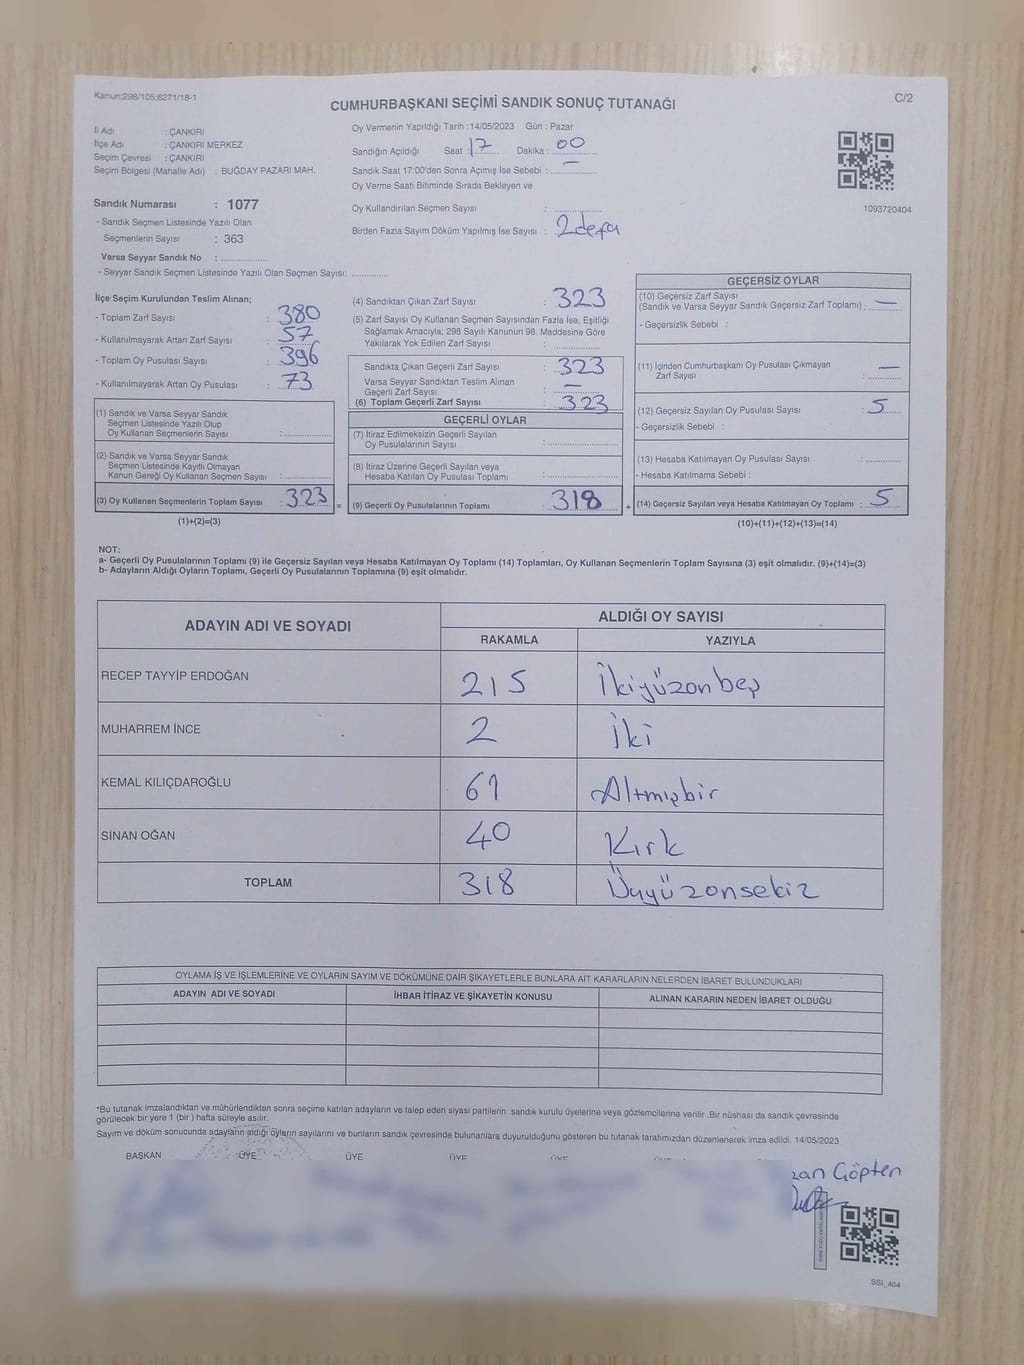 Kanun;298/105;6271/18-1
CUMHURBAŞKANI SEÇİMİ SANDIK SONUÇ TUTANAĞI
C/2
İl Adı : ÇANKIRI
İlçe Adı : ÇANKIRI MERKEZ
Seçim Çevresi : ÇANKIRI
Seçim Bölgesi (Mahalle Adı) : BUĞDAY PAZARI MAH.
Sandık Numarası : 1077
- Sandık Seçmen Listesinde Yazılı Olan
Seçmenlerin Sayısı : 363
Varsa Seyyar Sandık No :
- Seyyar Sandık Seçmen Listesinde Yazılı Olan Seçmen Sayısı:
Oy Vermenin Yapıldığı Tarih :14/05/2023 Gün : Pazar
Sandığın Açıldığı Saat : 17 Dakika : 00
Sandık Saat 17:00'den Sonra Açımış İse Sebebi : —
Oy Verme Saati Bitiminde Sırada Bekleyen ve
Oy Kullandırılan Seçmen Sayısı :
Birden Fazla Sayım Döküm Yapılmış İse Sayısı : 2 defa
1093720404
İlçe Seçim Kurulundan Teslim Alınan;
- Toplam Zarf Sayısı : 380
- Kullanılmayarak Artan Zarf Sayısı : 57
- Toplam Oy Pusulası Sayısı : 396
- Kullanılmayarak Artan Oy Pusulası : 73
(1) Sandık ve Varsa Seyyar Sandık
Seçmen Listesinde Yazılı Olup
Oy Kullanan Seçmenlerin Sayısı :
(2) Sandık ve Varsa Seyyar Sandık
Seçmen Listesinde Kayıtlı Olmayan
Kanun Gereği Oy Kullanan Seçmen Sayısı :
(3) Oy Kullanan Seçmenlerin Toplam Sayısı : 323 =
(1)+(2)=(3)
(4) Sandıktan Çıkan Zarf Sayısı : 323
(5) Zarf Sayısı Oy Kullanan Seçmen Sayısından Fazla İse, Eşitliği
Sağlamak Amacıyla; 298 Sayılı Kanunun 98. Maddesine Göre
Yakılarak Yok Edilen Zarf Sayısı :
Sandıkta Çıkan Geçerli Zarf Sayısı : 323
Varsa Seyyar Sandıktan Teslim Alınan
Geçerli Zarf Sayısı : —
(6) Toplam Geçerli Zarf Sayısı : 323
GEÇERLİ OYLAR
(7) İtiraz Edilmeksizin Geçerli Sayılan
Oy Pusulalarının Sayısı :
(8) İtiraz Üzerine Geçerli Sayılan veya
Hesaba Katılan Oy Pusulası Toplamı :
(9) Geçerli Oy Pusulalarının Toplamı : 318 +
GEÇERSİZ OYLAR
(10) Geçersiz Zarf Sayısı
(Sandık ve Varsa Seyyar Sandık Geçersiz Zarf Toplamı) : —
- Geçersizlik Sebebi :
(11) İçinden Cumhurbaşkanı Oy Pusulası Çıkmayan
Zarf Sayısı : —
(12) Geçersiz Sayılan Oy Pusulası Sayısı : 5
- Geçersizlik Sebebi :
(13) Hesaba Katılmayan Oy Pusulası Sayısı :
- Hesaba Katılmama Sebebi :
(14) Geçersiz Sayılan veya Hesaba Katılmayan Oy Toplamı : 5
(10)+(11)+(12)+(13)=(14)
NOT:
a- Geçerli Oy Pusulalarının Toplamı (9) ile Geçersiz Sayılan veya Hesaba Katılmayan Oy Toplamı (14) Toplamları, Oy Kullanan Seçmenlerin Toplam Sayısına (3) eşit olmalıdır. (9)+(14)=(3)
b- Adayların Aldığı Oyların Toplamı, Geçerli Oy Pusulalarının Toplamına (9) eşit olmalıdır.
ADAYIN ADI VE SOYADI
ALDIĞI OY SAYISI
RAKAMLA YAZIYLA
RECEP TAYYİP ERDOĞAN 215 İkiyüzonbeş
MUHARREM İNCE 2 İki
KEMAL KILIÇDAROĞLU 61 Altmışbir
SİNAN OĞAN 40 Kırk
TOPLAM 318 Üçyüzonsekiz
OYLAMA İŞ VE İŞLEMLERİNE VE OYLARIN SAYIM VE DÖKÜMÜNE DAİR ŞİKAYETLERLE BUNLARA AİT KARARLARIN NELERDEN İBARET BULUNDUKLARI
ADAYIN ADI VE SOYADI İHBAR İTİRAZ VE ŞİKAYETİN KONUSU ALINAN KARARIN NEDEN İBARET OLDUĞU
*Bu tutanak imzalandıktan ve mühürlendikten sonra seçime katılan adayların ve talep eden siyasi partilerin sandık kurulu üyelerine veya gözlemcilerine verilir .Bir nüshası da sandık çevresinde
görülecek bir yere 1 (bir ) hafta süreyle asılır.
Sayım ve döküm sonucunda adayların aldığı oyların sayılarını ve bunların sandık çevresinde bulunanlara duyurulduğunu gösteren bu tutanak tarafımızdan düzenlenerek imza edildi. 14/05/2023
BAŞKAN ÜYE ÜYE ÜYE ÜYE
Göpten
SSI_404